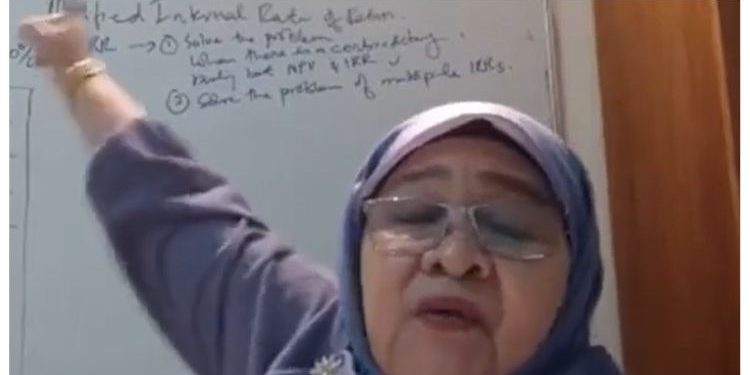 Internal Rate of Return.
RR → ① Solve the problem
When there is a contradictory
NPV & IRR
② Solve the problem of multiple IRRs.